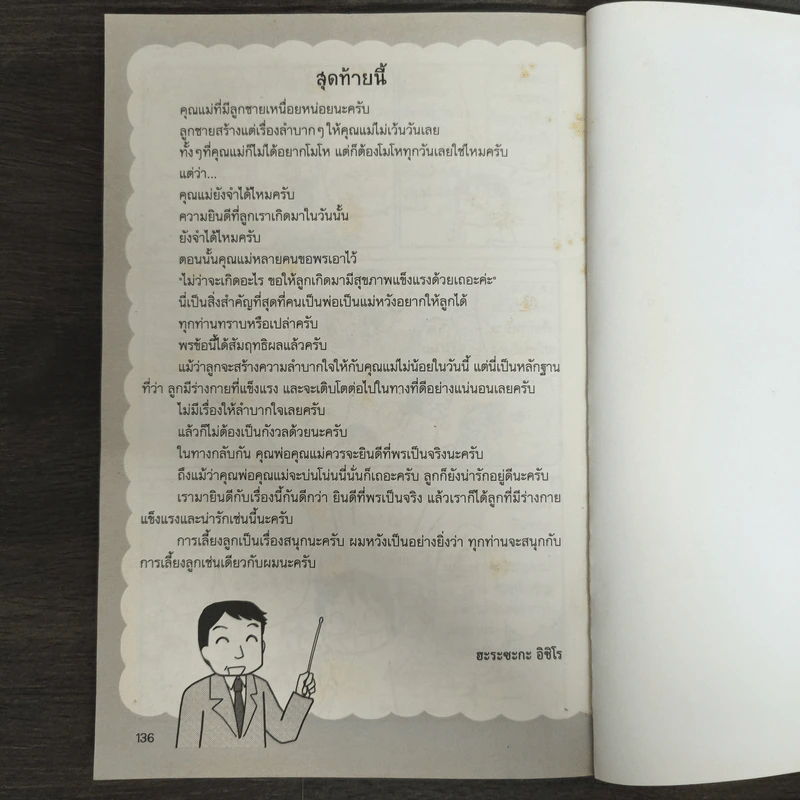 สุดท้ายนี้
คุณแม่ที่มีลูกชายเหนื่อยหน่อยนะครับ
ลูกชายสร้างแต่เรื่องลำบากๆ ให้คุณแม่ไม่เว้นวันเลย
ทั้งๆ ที่คุณแม่ก็ไม่ได้อยากโมโห แต่ก็ต้องโมโหทุกวันเลยใช่ไหมครับ
แต่ว่า...
คุณแม่ยังจำได้ไหมครับ
ความยินดีที่ลูกเราเกิดมาในวันนั้น
ยังจำได้ไหมครับ
ตอนนั้นคุณแม่หลายคนขอพรเอาไว้
"ไม่ว่าจะเกิดอะไร ขอให้ลูกเกิดมามีสุขภาพแข็งแรงด้วยเถอะค่ะ"
นี่เป็นสิ่งสำคัญที่สุดที่คนเป็นพ่อเป็นแม่หวังอยากให้ลูกได้
ทุกท่านทราบหรือเปล่าครับ
พรข้อนี้ได้สัมฤทธิผลแล้วครับ
แม้ว่าลูกจะสร้างความลำบากใจให้กับคุณแม่ไม่น้อยในวันนี้ แต่นี่เป็นหลักฐาน
ที่ว่า ลูกมีร่างกายที่แข็งแรง และจะเติบโตต่อไปในทางที่ดีอย่างแน่นอนเลยครับ
ไม่มีเรื่องให้ลำบากใจเลยครับ
แล้วก็ไม่ต้องเป็นกังวลด้วยนะครับ
ในทางกลับกัน คุณพ่อคุณแม่ควรจะยินดีที่พรเป็นจริงนะครับ
ถึงแม้ว่าคุณพ่อคุณแม่จะบ่นโน่นนี่นั่นก็เถอะครับ ลูกก็ยังน่ารักอยู่ดีนะครับ
เรามายินดีกับเรื่องนี้กันดีกว่า ยินดีที่พรเป็นจริง แล้วเราก็ได้ลูกที่มีร่างกาย
แข็งแรงและน่ารักเช่นนี้นะครับ
การเลี้ยงลูกเป็นเรื่องสนุกนะครับ ผมหวังเป็นอย่างยิ่งว่า ทุกท่านจะสนุกกับ
การเลี้ยงลูกเช่นเดียวกับผมนะครับ
ฮะระซะกะ อิชิโร
136